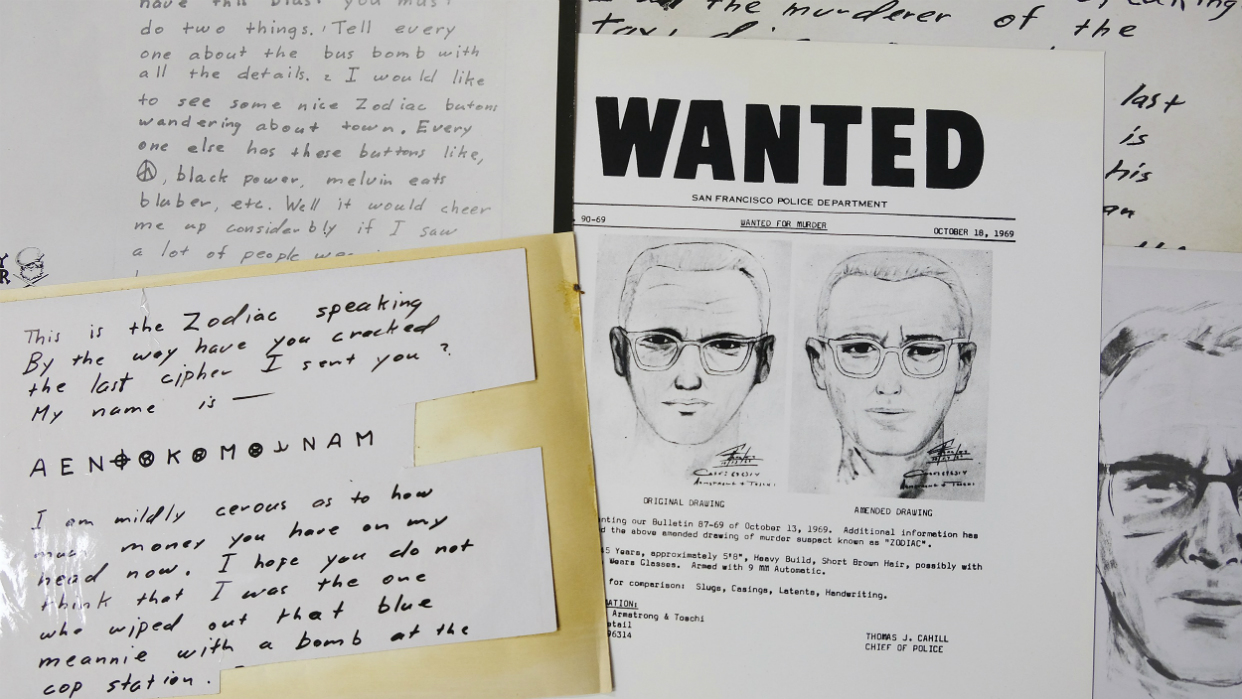 have this blast you must
do two things. Tell every
one about the bus bomb with
all the details. 2 I would like
to see some nice Zodiac butons
wandering about town. Every
one else has these buttons like,
☮, black power, melvin eats
bluber, etc. Well it would cheer
me up considerbly if I saw
a lot of people
This is the Zodiac speaking
By the way have you cracked
the last cipher I sent you?
My name is —
A E N ⌖ ⊗ K ⊗ M ⊗ ⅃ N A M
I am mildly cerous as to how
much money you have on my
head now. I hope you do not
think that I was the one
who wiped out that blue
meannie with a bomb at the
cop station.
the murderer of the
last
is
his
WANTED
SAN FRANCISCO POLICE DEPARTMENT
90-69 WANTED FOR MURDER OCTOBER 18, 1969
ORIGINAL DRAWING AMENDED DRAWING
our Bulletin 87-69 of October 13, 1969. Additional information has
the above amended drawing of murder suspect known as "ZODIAC".
Years, approximately 5'8", Heavy Build, Short Brown Hair, possibly with
Wears Glasses. Armed with 9 MM Automatic.
for comparison: Slugs, Casings, Latents, Handwriting.
Armstrong & Toschi
96314
THOMAS J. CAHILL
CHIEF OF POLICE